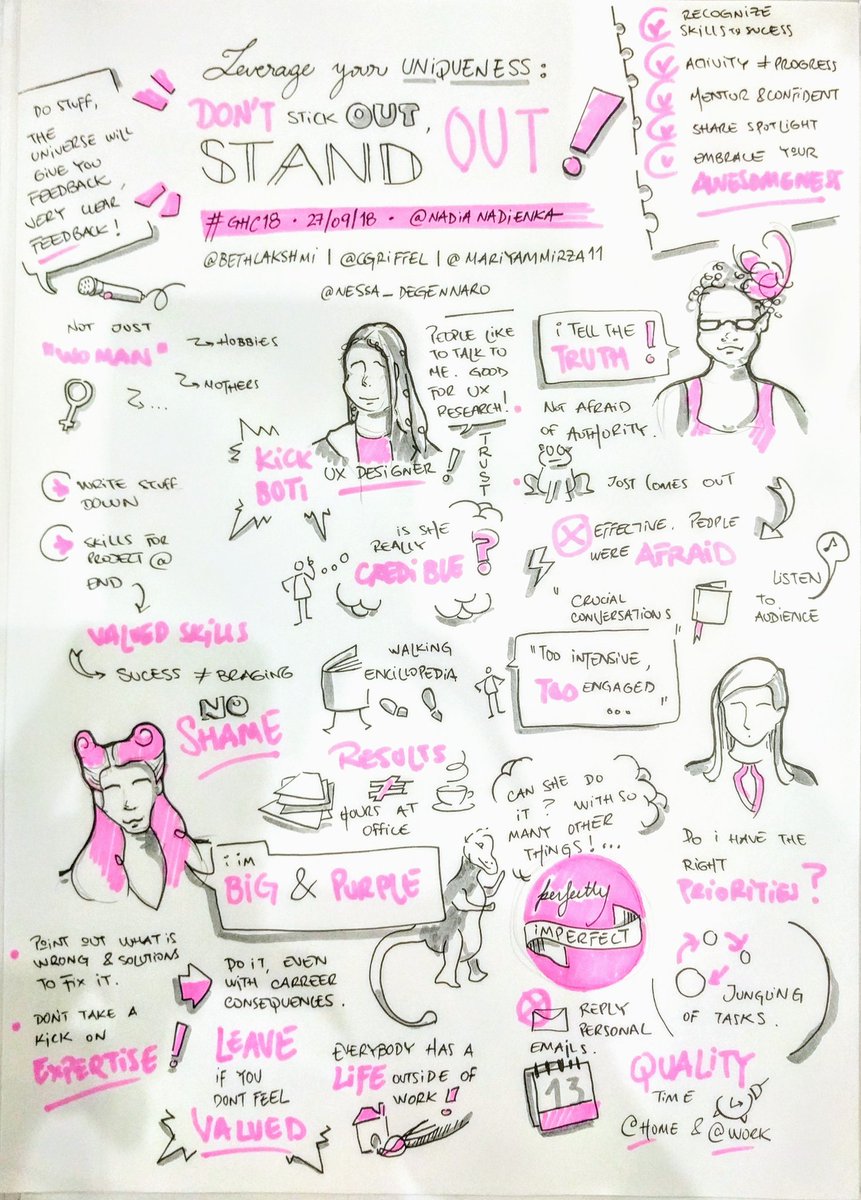 Leverage your UNIQUENESS:
DON'T STICK OUT,
STAND OUT!
#GHC18 · 27/09/18 · @NADIANADIENKA
@BETHLAKSHMI | @CGRIFFEL | @MARIYAMMIRZA11
@NESSA_DEGENNARO
DO STUFF,
THE
UNIVERSE WILL
GIVE YOU
FEEDBACK,
VERY CLEAR
FEEDBACK!
RECOGNIZE
SKILLS TO SUCESS
ACTIVITY ≠ PROGRESS
MENTOR & CONFIDENT
SHARE SPOTLIGHT
EMBRACE YOUR
AWESOMENESS
NOT JUST
"WOMAN"
HOBBIES
MOTHERS
...
WRITE STUFF
DOWN
SKILLS FOR
PROJECT @
END
VALUED SKILLS
SUCESS ≠ BRAGING
NO
SHAME
PEOPLE LIKE
TO TALK TO
ME. GOOD
FOR UX
RESEARCH!
TRUST
KICK
BOTI
UX DESIGNER!
IS SHE
REALLY
CREDIBLE?
WALKING
ENCILLOPEDIA
RESULTS
≠
HOURS AT
OFFICE
I TELL THE
TRUTH!
NOT AFRAID
OF AUTHORITY.
JUST COMES OUT
EFFECTIVE. PEOPLE
WERE AFRAID
LISTEN
TO
AUDIENCE
"CRUCIAL
CONVERSATIONS
"TOO INTENSIVE,
TOO ENGAGED
..."
I IM
BIG & PURPLE
POINT OUT WHAT IS
WRONG & SOLUTIONS
TO FIX IT.
DON'T TAKE A
KICK ON
EXPERTISE!
DO IT, EVEN
WITH CARREER
CONSEQUENCES.
LEAVE
IF YOU
DONT FEEL
VALUED
EVERYBODY HAS A
LIFE OUTSIDE OF
WORK!
CAN SHE DO
IT? WITH SO
MANY OTHER
THINGS!...
perfectly
IMPERFECT
DO I HAVE THE
RIGHT
PRIORITIES?
JUNGLING
OF TASKS.
REPLY
PERSONAL
EMAILS.
13
QUALITY
TIME
@HOME & @WORK